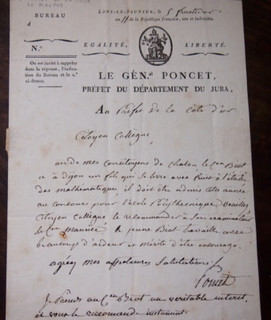 LONS-LE-SAUNIER, le 5
an 11 de la République française, une et indivisible.
BUREAU
d
N.º
ÉGALITÉ,
LIBERTÉ.
On est invité à rappeler
dans la réponse, l'indica-
tion du Bureau et le n.º
ci-dessus.
LE GÉN.ᵃˡ PONCET,
PRÉFET DU DÉPARTEMENT DU JURA,
Au Préfet de la Côte d'or
Citoyen Collègue
un de mes Concitoyens de Chalon le Cen Biot
a à Dijon un fils qui se livre avec à l'étude
des mathématiques, il doit être admis cette année
au concours pour l'école Polythecnique Veuillez
Citoyen Collègue le recommander à son examinateur
le Cen Monnier. Ce jeune Biot travaille avec
beaucoup d'ardeur et mérite d'être encouragé.
agréez mes affectueuses Salutations
Poncet
Je prends au Cen Biot un véritable interet,
je vous le recommande instamment